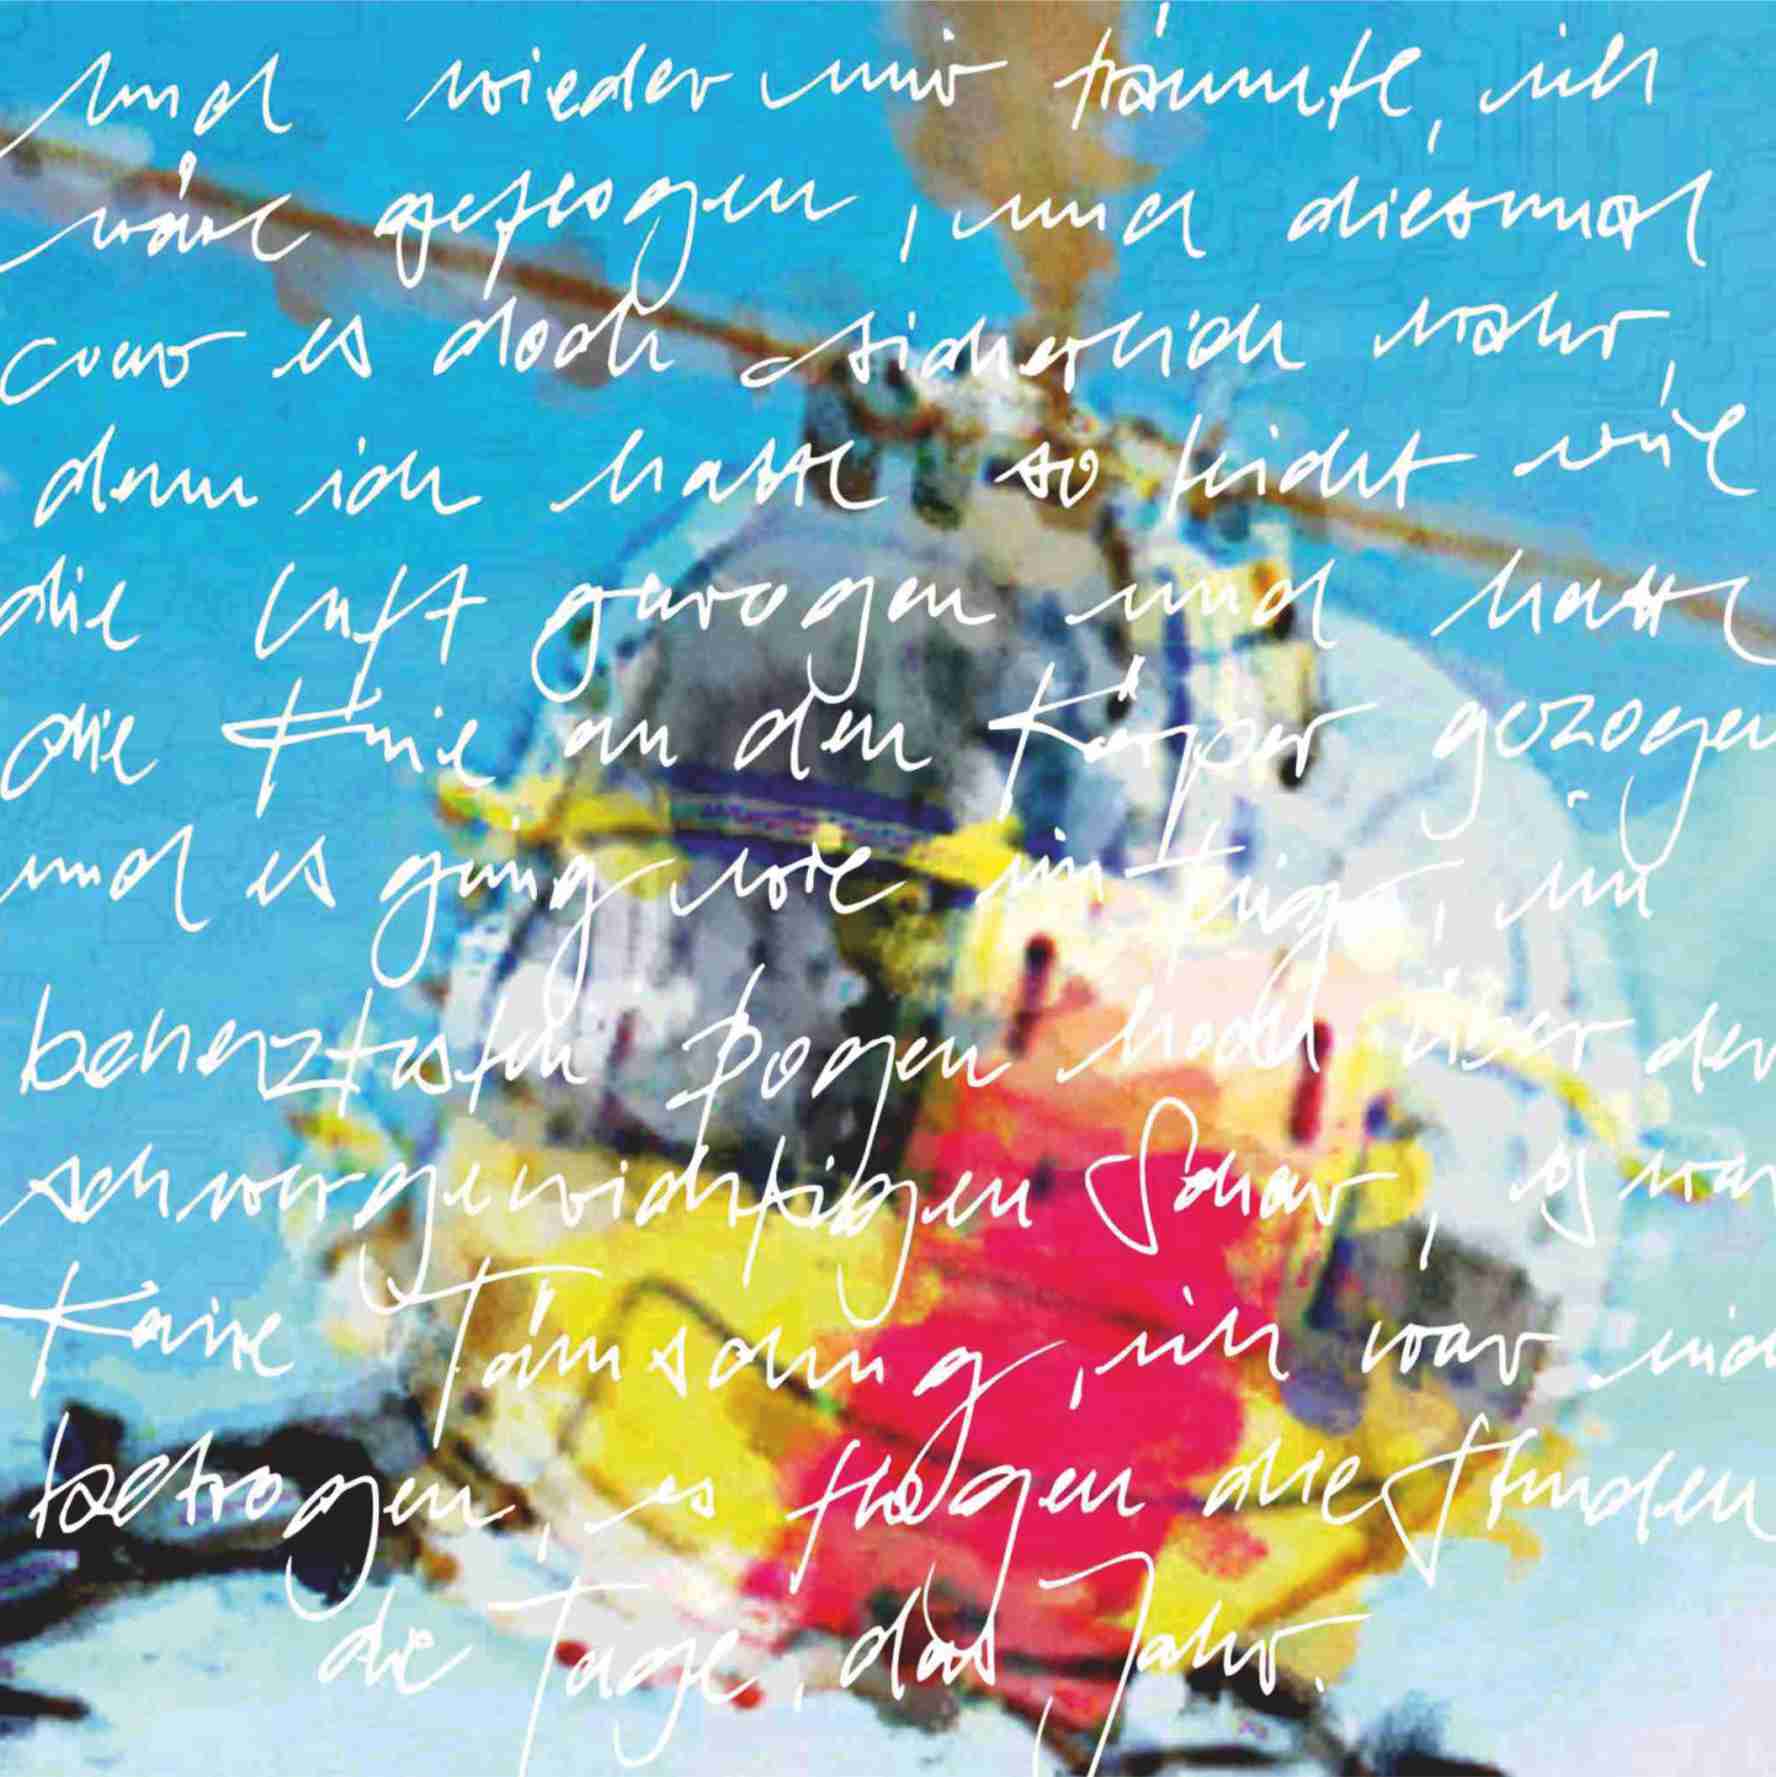 und wieder mir träumte, ich
wäre geflogen, und diesmal
war es doch sicherlich wahr,
denn ich hatte so leicht wie
die Luft gewogen und hatte
die Knie an den Körper gezogen
und es ging wie ein Tiger, im
beherztesten Bogen hoch über der
schwergewichtigen Schar, es war
keine Täuschung, ich war nich
betrogen, es flogen die Stunden
die Tage, das Jahr.